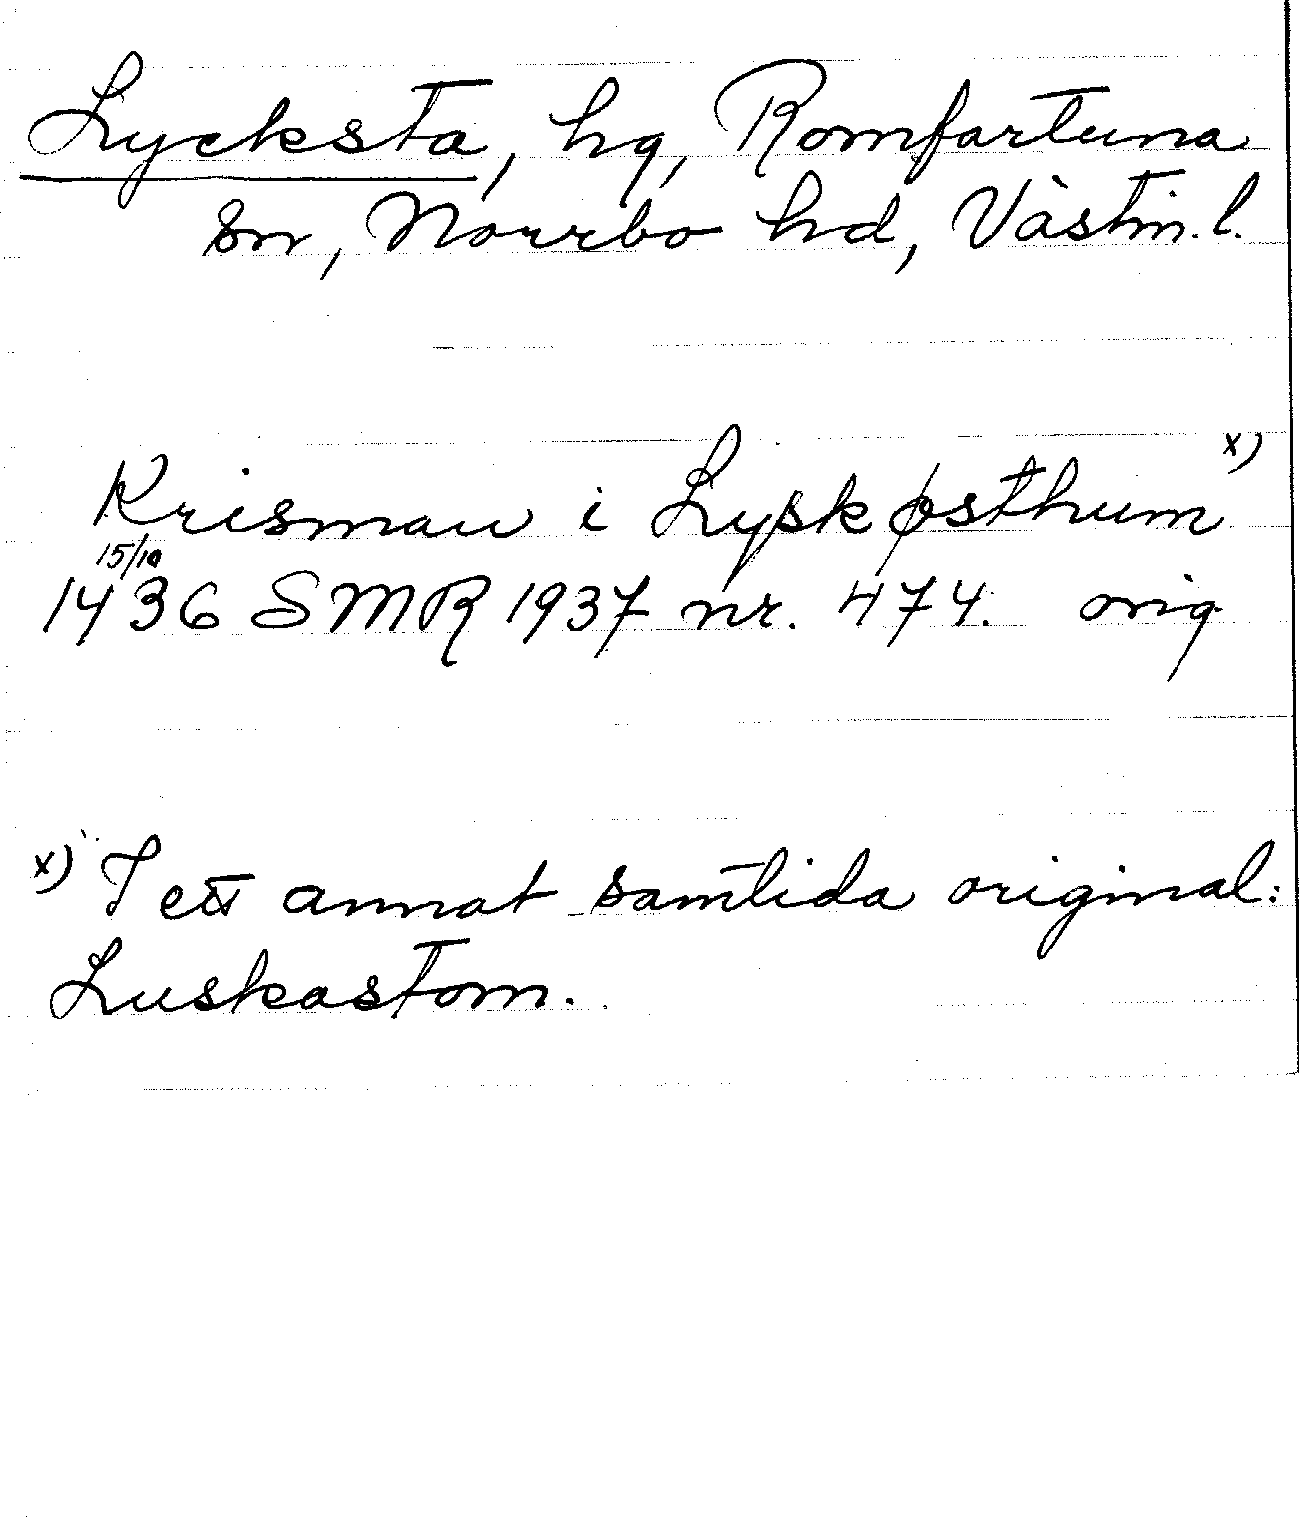 Lycksta, hg, Romfartuna
sn, Norrbo hd, Västm. l.
x)
Krisman i Lyskøsthum
15/10
1436 SMR 1937 nr. 474. orig
x) I ett annat samtida original:
Luskastom.